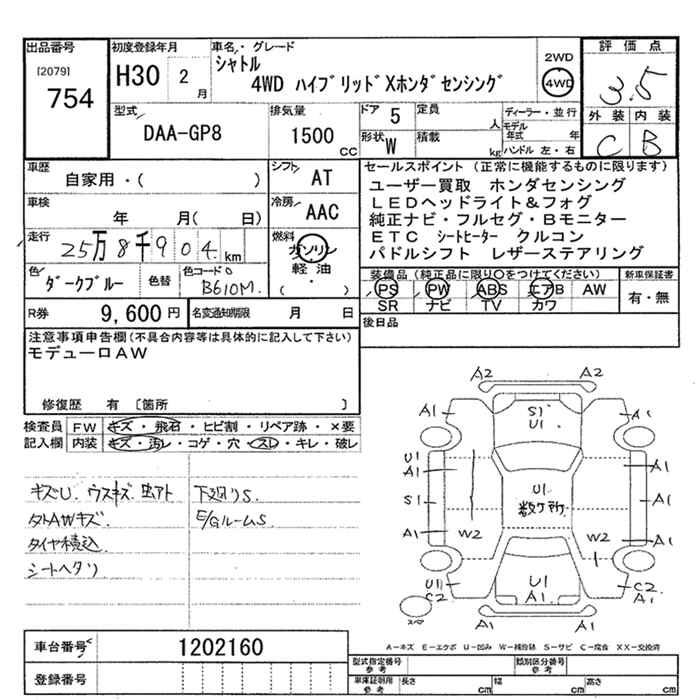 出品番号
[2079]
754
初度登録年月
H30 2月
車名・グレード
シャトル
4WD ハイブリッドXホンダセンシング
2WD
4WD
評価点
3.5
外装 内装
C B
型式
DAA-GP8
排気量
1500cc
ドア 5
形状 W
定員 人
積載 kg
ディーラー・並行
モデル年式 年
ハンドル 左・右
車歴
自家用・( )
シフト AT
車検
年 月( 日)
冷房 AAC
走行
25万8千904km
燃料
ガソリン
軽油
( ・ )
色 ダークブルー
色替
色コードO
B610M.
R券 9,600円
名変通知期限 月 日
セールスポイント(正常に機能するものに限ります)
ユーザー買取 ホンダセンシング
LEDヘッドライト&フォグ
純正ナビ・フルセグ・Bモニター
ETC シートヒーター クルコン
パドルシフト レザーステアリング
装備品(純正品に限り○をつけてください)
PS PW ABS エアB AW
SR ナビ TV カワ
新車保証書
有・無
後日品
注意事項申告欄(不具合内容等は具体的に記入して下さい)
モデューロAW
修復歴 有 〔箇所 〕
検査員記入欄
FW キズ・飛石・ヒビ割・リペア跡・×要
内装 キズ・汚レ・コゲ・穴・スレ・キレ・破レ
キズU. ウスキズ. 虫アト 下廻りS.
タイAWキズ. E/GルームS
タイヤ積込
シートヘタリ
A2 A2
A1 S1 A1
U1
U1
A1 A1
S1 U1 A1
数ヶ所
A1 W2 W2 A1
U1 U1 C2
C2 A1 A1
スペア
A1 A1
A=キズ E=エクボ U=凹み W=補修跡 S=サビ C=腐食 XX=交換済
車台番号 1202160
登録番号
型式指定番号 参考
類別区分番号 参考
車庫証明用 参考
長さ cm 幅 cm 高さ cm